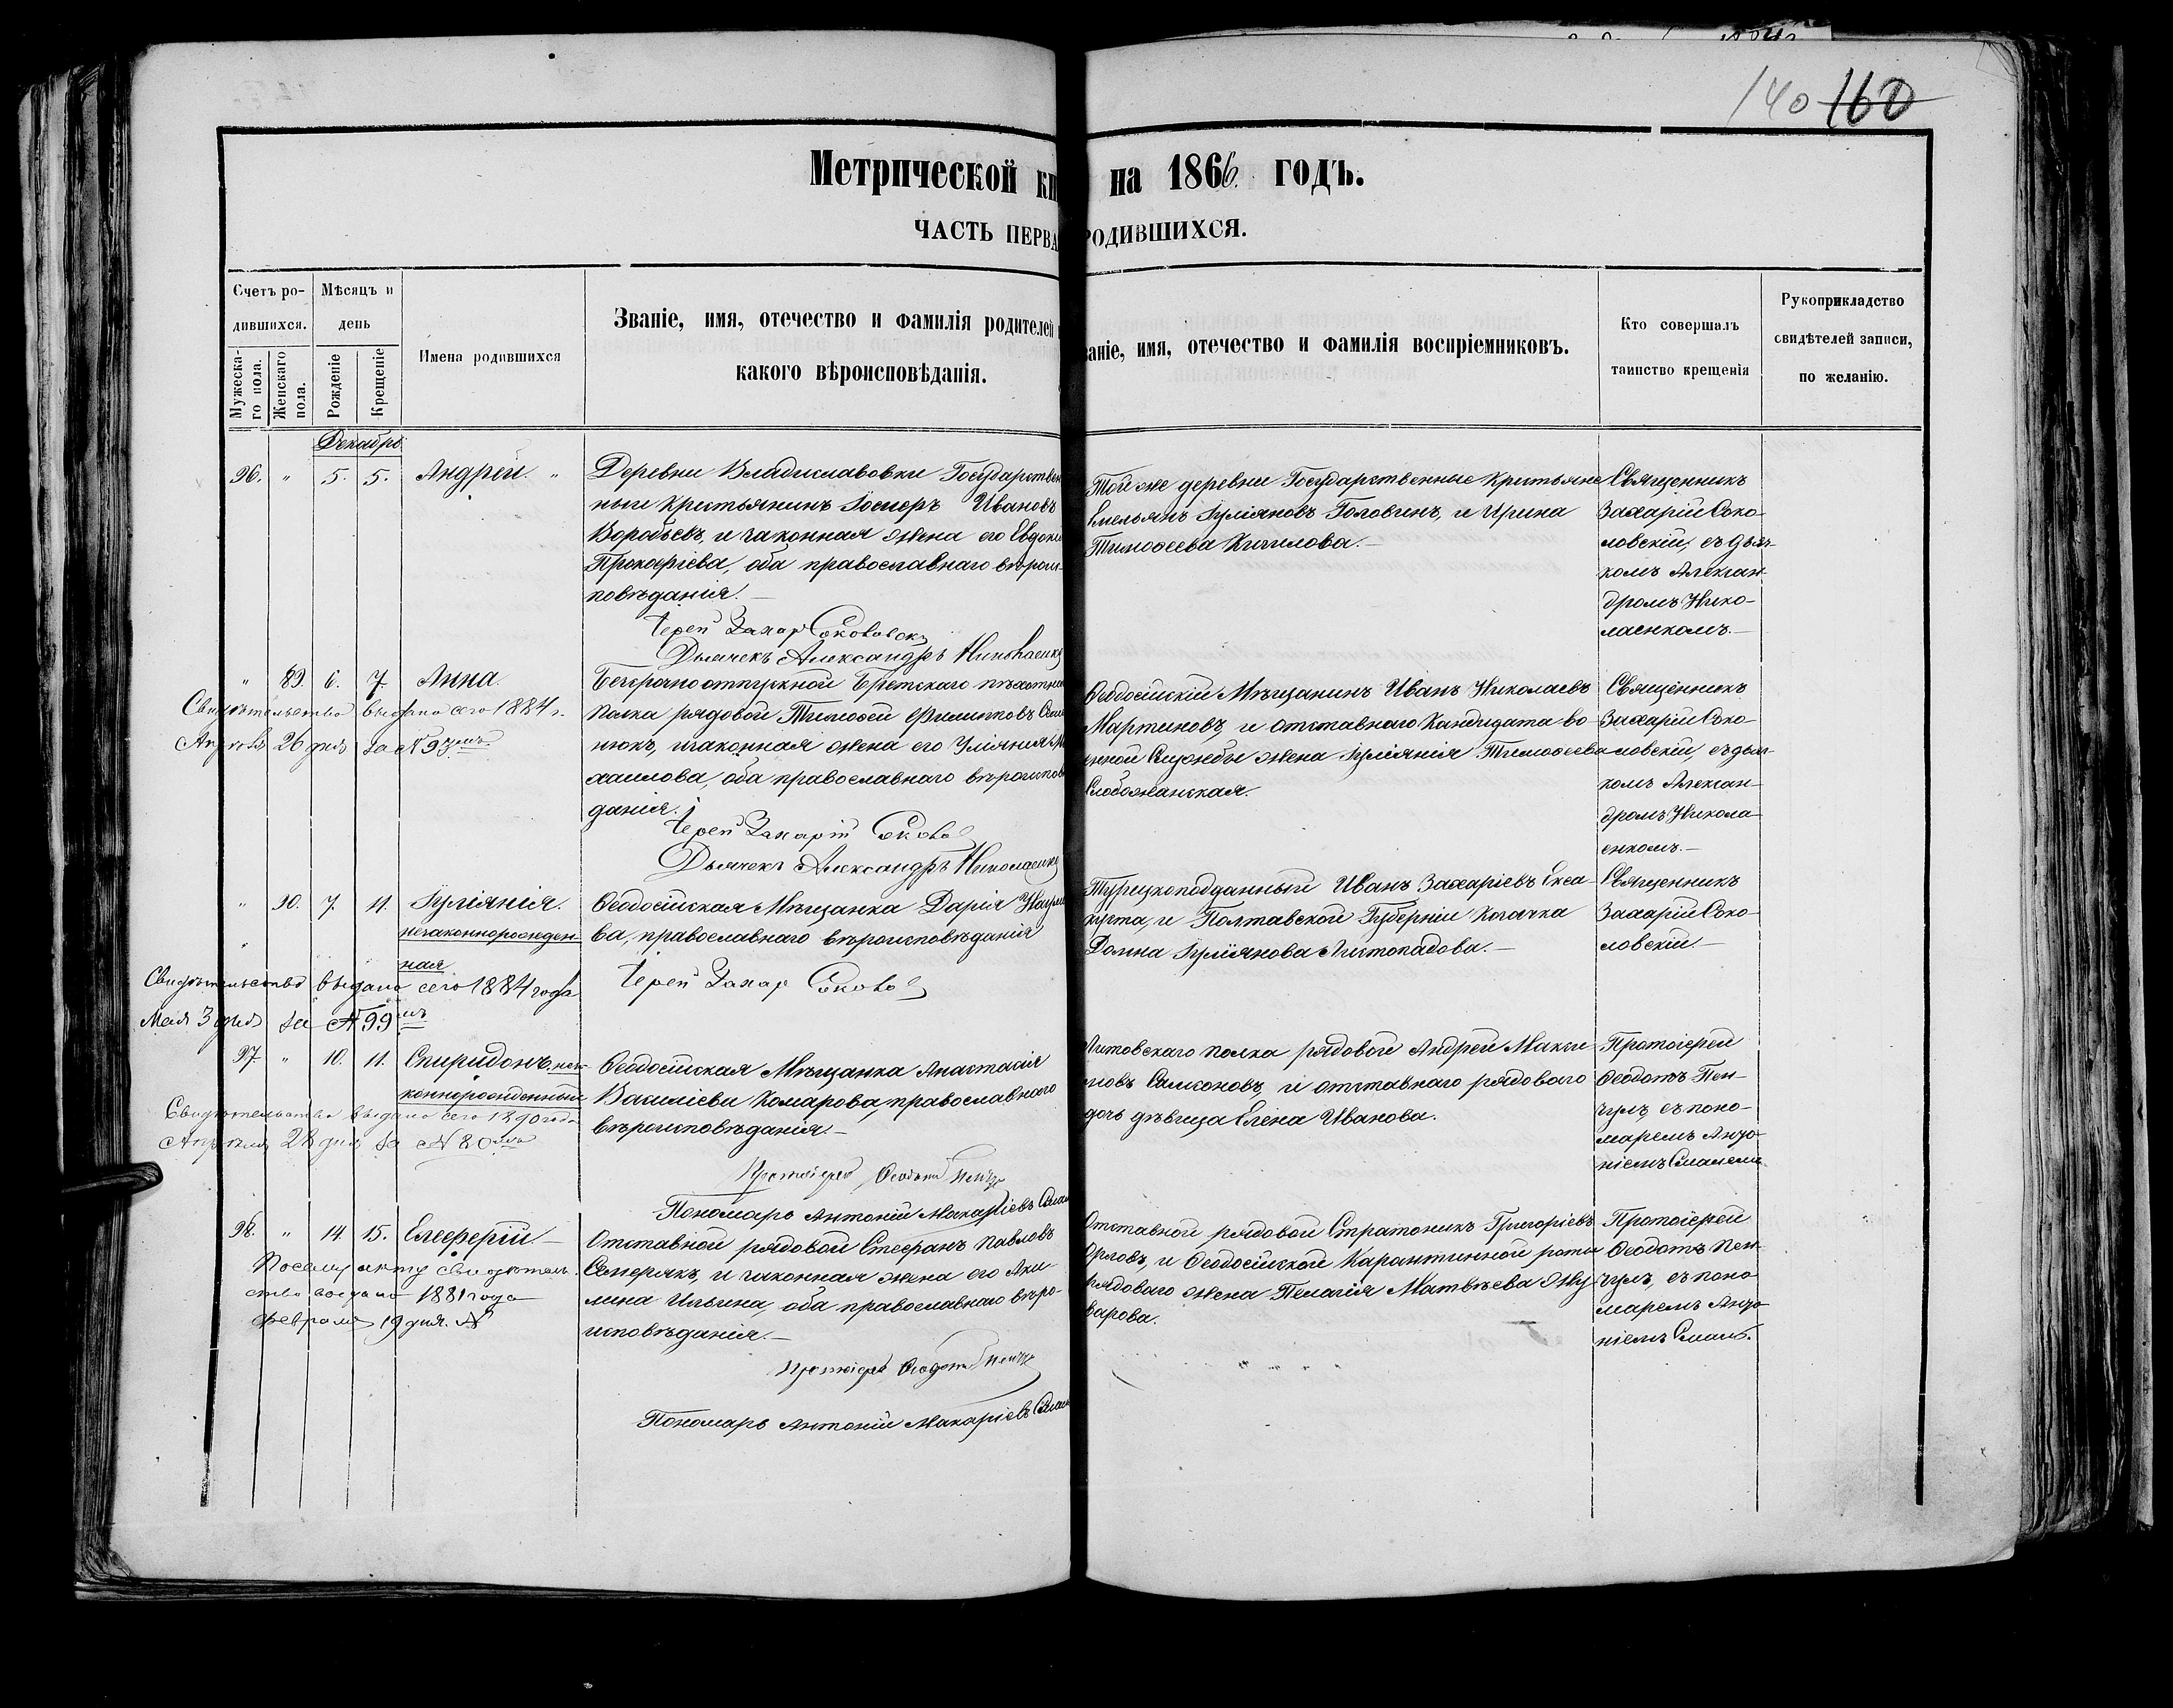 140 160
Метрической кн на 1866. годъ.
ЧАСТЬ ПЕРВА РОДИВШИХСЯ.
Счетъ ро-
дившихся.
Мужеска-
го пола.
Женскаго
пола.
Мѣсяцъ и
день
Рожденіе
Крещеніе
Имена родившихся
Званіе, имя, отечество и фамилія родителей
какого вѣроисповѣданія.
ваніе, имя, отечество и фамилія воспріемниковъ.
Кто совершалъ
таинство крещенія
Рукоприкладство
свидѣтелей записи,
по желанію.
Декабрь
96. " 5. 5. Андрей. "
Деревни Владиславовки Государствен
ный крестьянинъ Ивановъ
Воробьевъ, и законная жена его Евдокі
Прокофіева, оба православнаго вѣроис-
повѣданія.
Іерей Захар Соколовск
Дьячекъ Александръ Николаенко
Той же деревни Государственные крестьяне
Емельянъ Іуліановъ Головинъ, и Ирина
Тимофеева Кичилова.
Священникъ
Захарій Соко-
ловскій, съ дьяч-
комъ Алексан-
дромъ Нико-
лаенкомъ.
" 89. 6. 7. Анна
Свидѣтельство выдано сего 1884 г.
Апрѣля 26 дня за № 93мъ
Безсрочноотпускной Брестскаго пѣхотна
полка рядовой Тимофей Филиповъ
нюкъ, и законная жена его Уліянія Ми
хаилова, оба православнаго вѣроисповѣ
данія.
Іерей Захарій Соколов
Дьячекъ Александръ Николаенко
Ѳеодосійскій Мѣщанинъ Иванъ Николаевъ
Мартиновъ, и отставнаго Кандидата во-
енной Службы жена Іуліянія Тимофеева
Слобожанская.
Священникъ
Захарій Соко-
ловскій, съ дьяч-
комъ Алексан-
дромъ Никола-
енкомъ.
" 90. 7. 11. Іуліянія.
незаконнорожден-
ная
Свидѣтельство выдано сего 1884 года
Мая 3 дня за № 99мъ
Ѳеодосійская Мѣщанка Дарія Наумо
ва, православнаго вѣроисповѣданія
Іерей Захар Соколов
Турецкоподданный Иванъ Захаріевъ
и Полтавской Губерніи Козачка
Домна Іуліянова Листопадова.
Священникъ
Захарій Соко-
ловскій.
97. " 10. 11. Спиридонъ, неза-
коннорожденный
Свидѣтельство выдано сего 1890 года
Апрѣля 28 дня за № 80мъ
Ѳеодосійская Мѣщанка Анастасія
Василіева Комарова, православнаго
вѣроисповѣданія.
Протоіерей Ѳеодотъ Пенчул
Пономарь Антоній Макаріевъ
Литовскаго полка рядовой Андрей Макси-
мовъ Самсоновъ, и отставнаго рядоваго
дочь дѣвица Елена Иванова.
Протоіерей
Ѳеодотъ Пен-
чулъ, съ поно-
маремъ Анто-
ніемъ
98. " 14. 15. Елеферій.
По сему акту свидѣтель-
ство выдано 1881 года
февраля 19 дня. №
Отставной рядовой Стефанъ Павловъ
и законная жена его Аки-
лина Ильина, оба православнаго вѣро-
исповѣданія.
Протоіерей Ѳеодотъ Пенчул
Пономарь Антоній Макаріевъ
Отставной рядовой Стратоникъ Григоріевъ
Орловъ, и Ѳеодосійской Карантинной роты
рядоваго жена Пелагія Матвѣева Жу-
варова.
Протоіерей
Ѳеодотъ Пен-
чулъ, съ поно-
маремъ Анто-
ніемъ